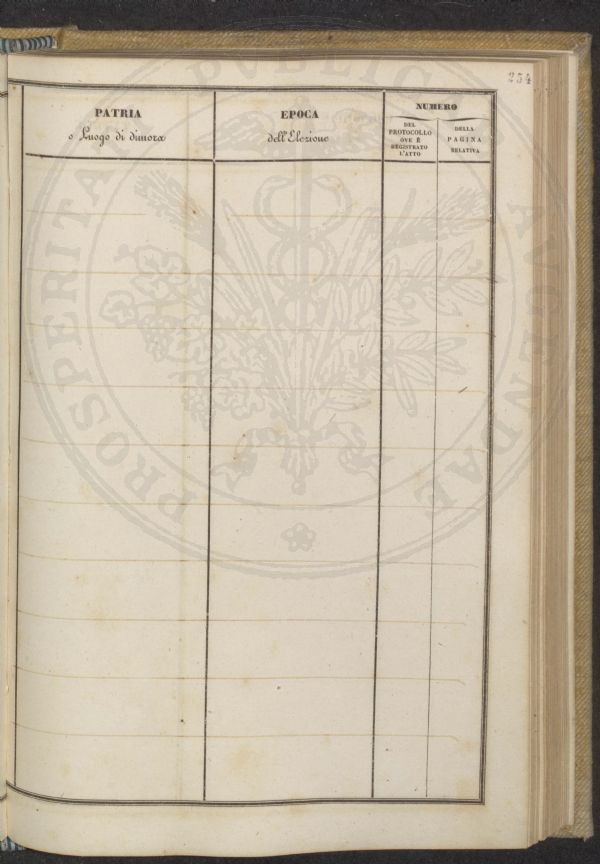 234
PATRIA
o Luogo di dimora
EPOCA
dell'Elezione
NUMERO
DEL
PROTOCOLLO
OVE È
REGISTRATO
L'ATTO
DELLA
PAGINA
RELATIVA
PROSPERITATI PUBLICAE AVGENDAE